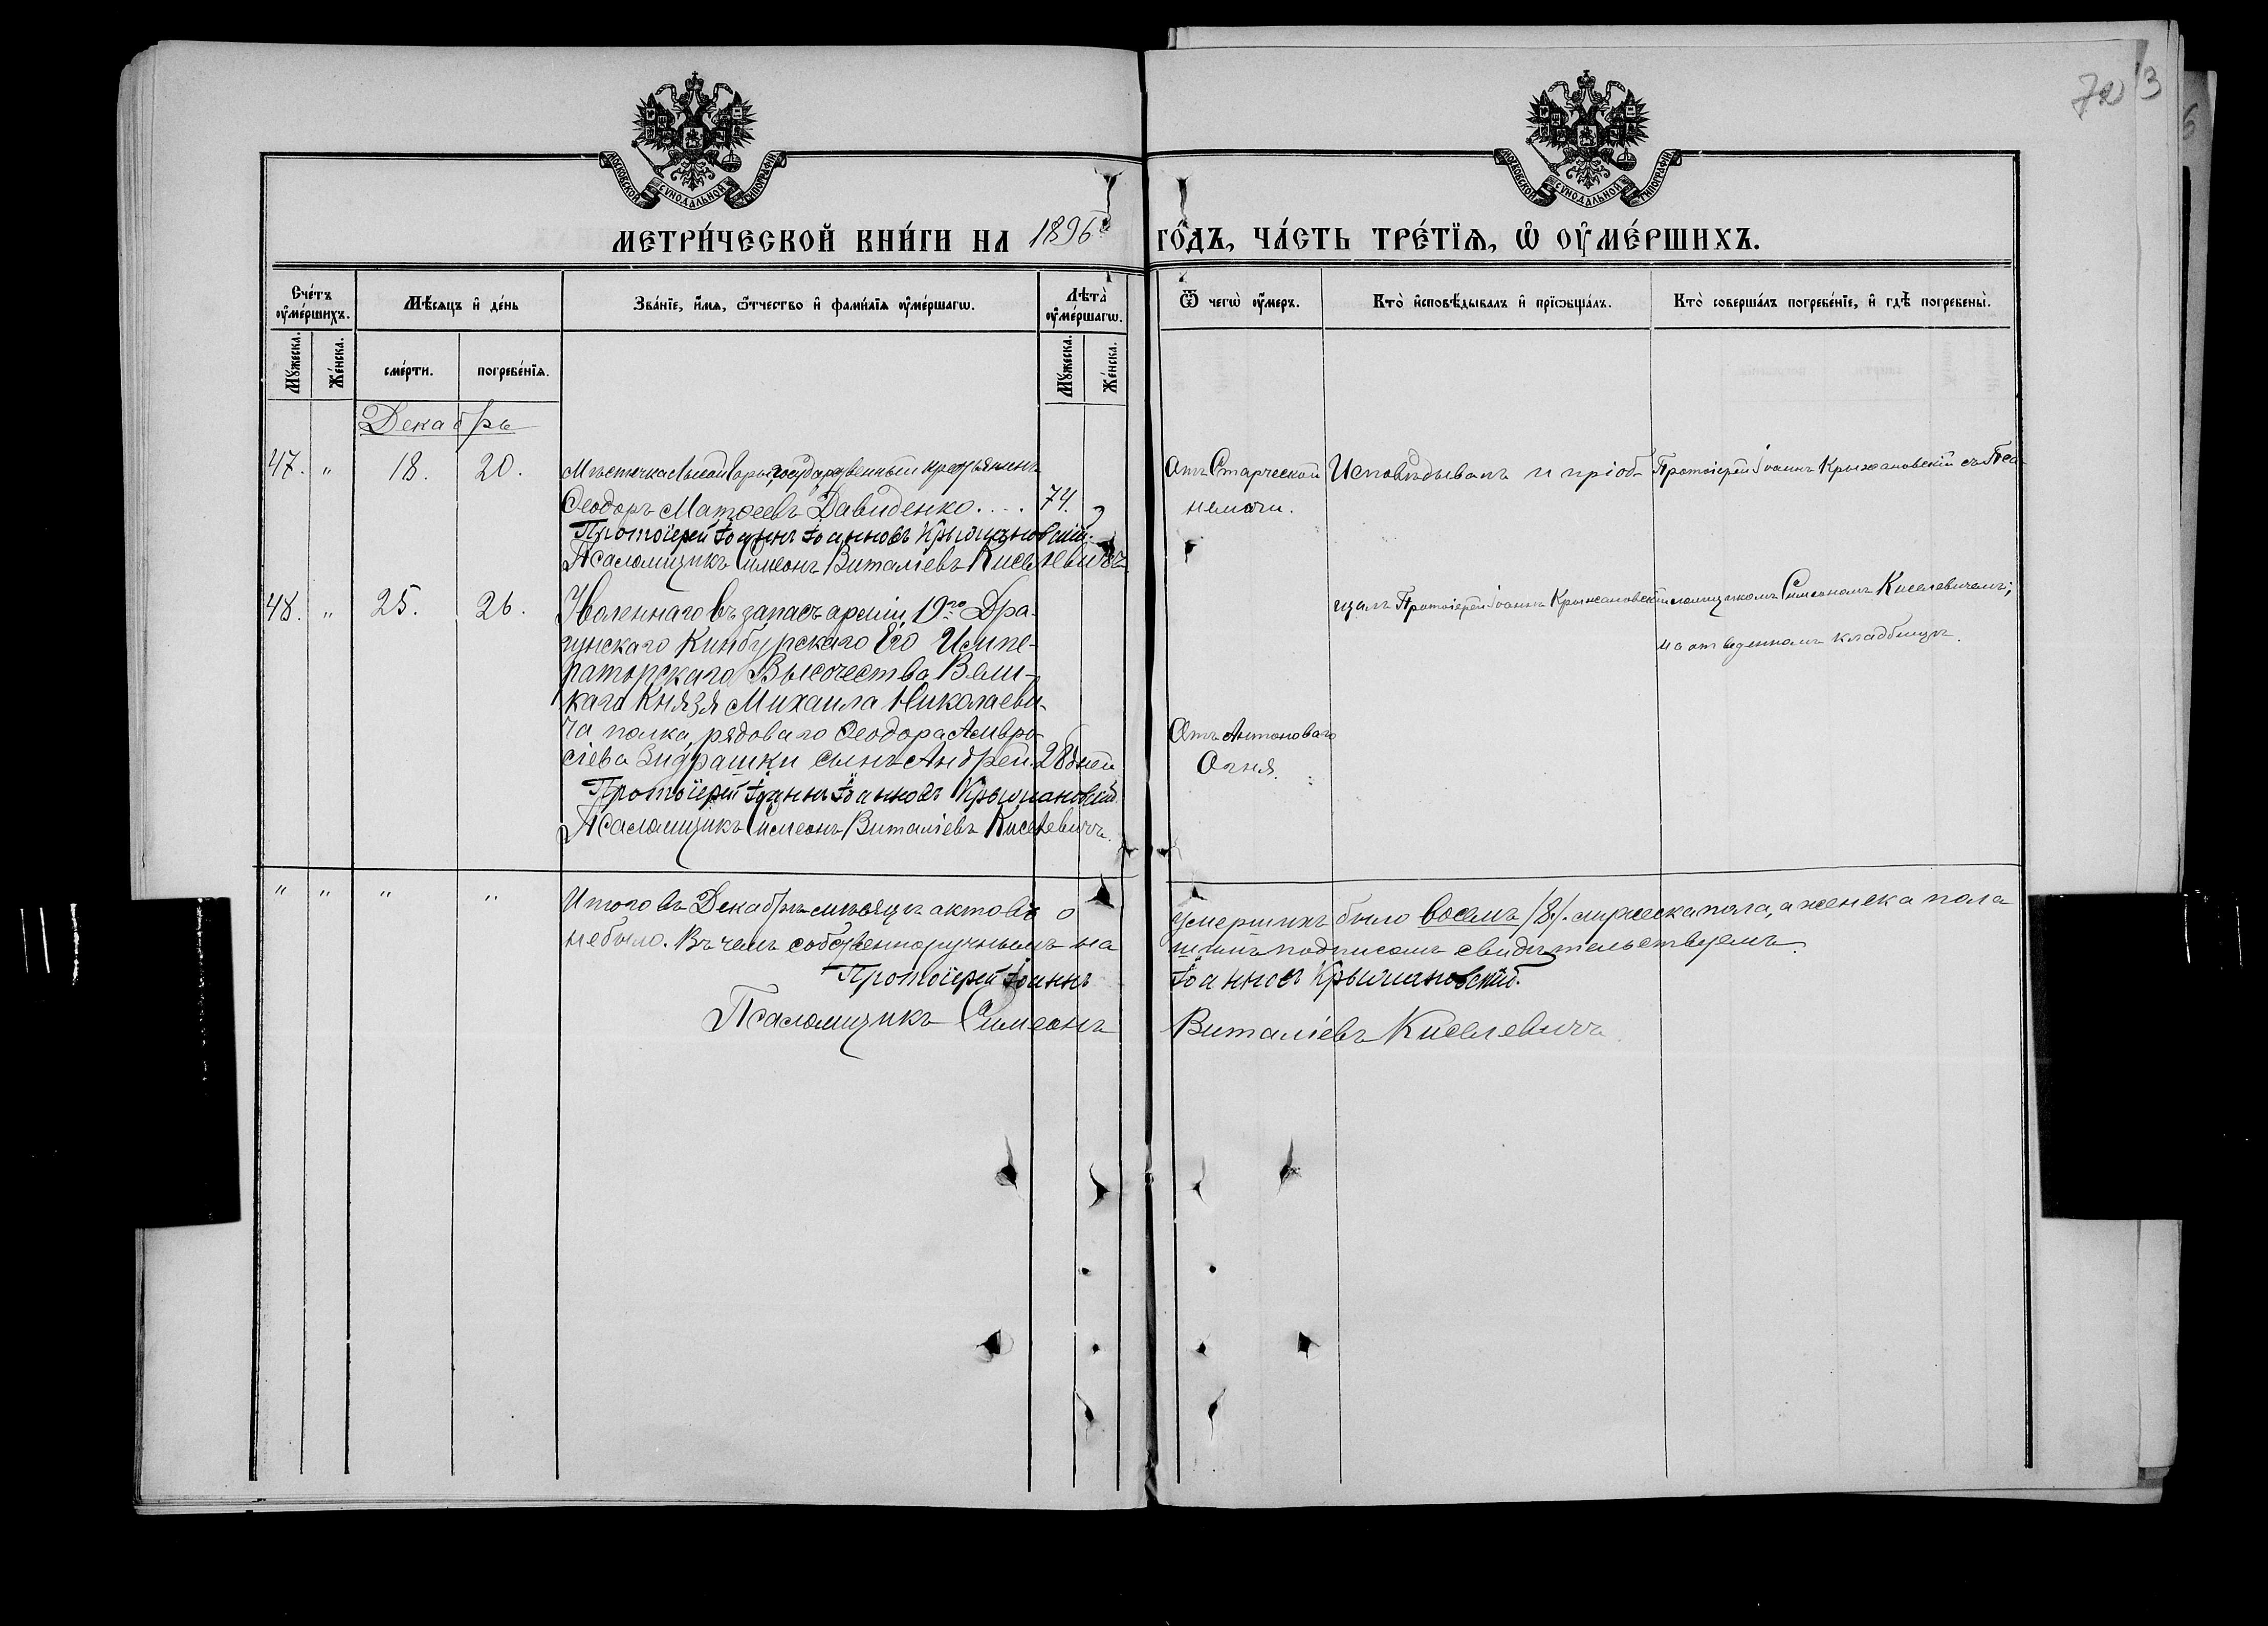 70 13
МОСКОВСКОЙ СѴНОДАЛЬНОЙ ТИПОГРАФІИ
МОСКОВСКОЙ СѴНОДАЛЬНОЙ ТИПОГРАФІИ
МЕТРИ́ЧЕСКОЙ КНИ́ГИ НА 1896й ГО́ДЪ, ЧА́СТЬ ТРЕ́ТЇѦ, Ѡ҆ ОУ҆МЕ́РШИХЪ.
Сче́тъ оу҆ме́ршихъ.
Мѣ́сяцъ и҆ де́нь
Зва́нїе, и҆́мя, ѻ҆́тчество и҆ фами́лїя оу҆ме́ршагѡ.
Лѣта̀ оу҆ме́ршагѡ.
Ѿ чегѡ̀ оу҆́меръ.
Кто̀ и҆сповѣ́дывалъ и҆ прїѡбща́лъ.
Кто̀ соверша́лъ погребе́нїе, и҆ гдѣ̀ погребены̀.
Мꙋ́жеска.
Же́нска.
сме́рти.
погребе́нїя.
Мꙋ́жеска.
Же́нска.
Декабрь
47. " 18. 20. Мѣстечка Лысой Горы, государственный крестьянинъ
Ѳеодоръ Матѳеевъ Давиденко.... 74.
Протоіерей Іоаннъ Іоанновъ Крыжановскій.
Псаломщикъ Симеонъ Виталіевъ Киселевичъ.
Отъ Старческой
немочи.
Исповѣдывалъ и пріоб-
Протоіерей Іоаннъ Крыжановскій съ Пса-
48. " 25. 26. Уволеннаго въ запасъ арміи, 19го Дра-
гунскаго Кинбурскаго Его Импе-
раторскаго Высочества Вели-
каго Князя Михаила Николаеви-
ча полка, рядоваго Ѳеодора Амвро-
сіева сынъ Андрей. 28 дней
Протоіерей Іоаннъ Іоанновъ Крыжановскій
Псаломщикъ Симеонъ Виталіевъ Киселевичъ.
щалъ Протоіерей Іоаннъ Крыжановскій
ломщикомъ Симеономъ Киселевичемъ;
на отведенномъ кладбищѣ.
Отъ Антонова
Огня.
" " " " Итого въ Декабрѣ мѣсяцѣ актовъ о умершихъ было восемь /8/. мужеска пола, а женска пола
не было. Въ чемъ собственноручнымъ нашимъ подписомъ свидѣтельствуемъ.
Протоіерей Іоаннъ Іоанновъ Крыжановскій.
Псаломщикъ Симеонъ Виталіевъ Киселевичъ.